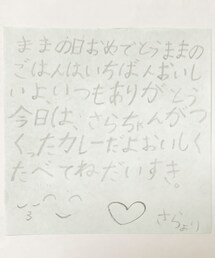 ままの日おめでとうままの
ごはんはいちばんおいし
いよ、いつもありがとう
今日は、さらちゃんがつ
くったカレーだよおいしく
たべてねだいすき。
さらより